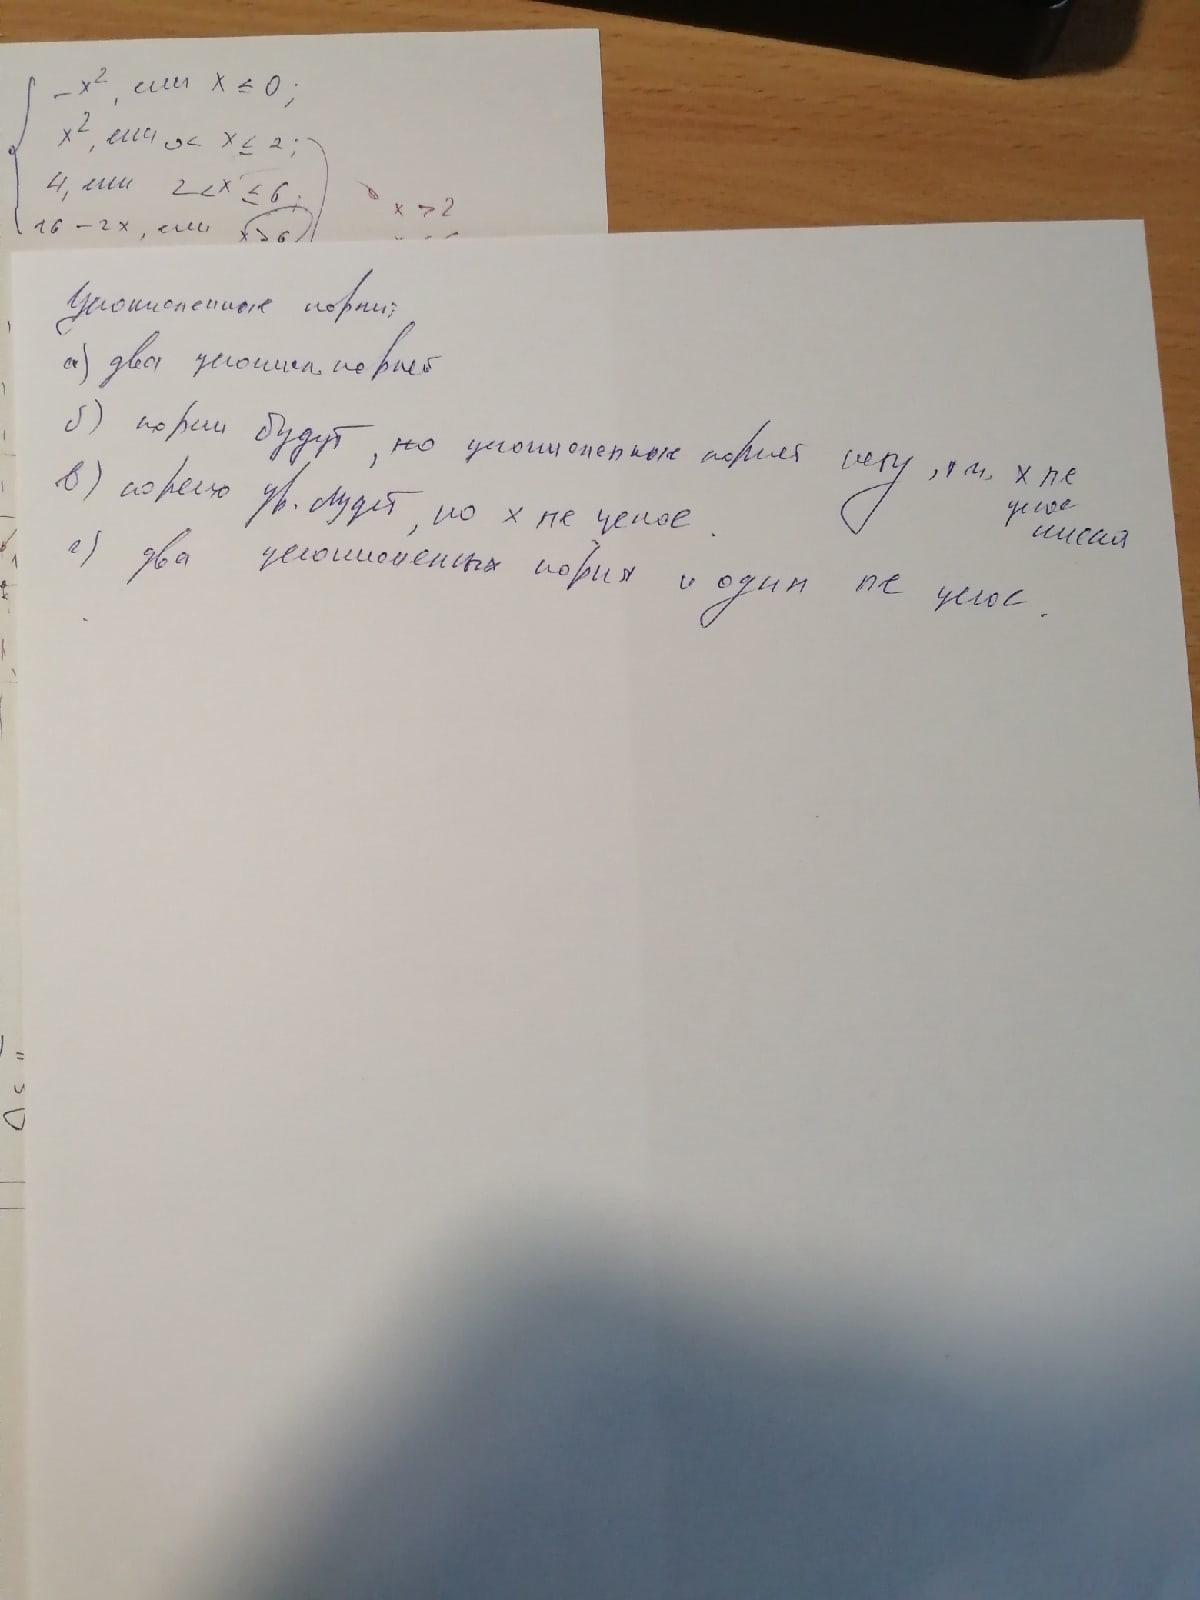 -x², если x ≤ 0;
x², если 0 < x ≤ 2;
4, если 2 < x ≤ 6;
16 - 2x, если x > 6
x > 2
Целочисленные корни:
а) два целочисл. корней
б) корни будут, но целочисленные корней нету, т.к. x не целое числа
в) корень ур. будет, но x не целое.
г) два целочисленных корня и один не целое.